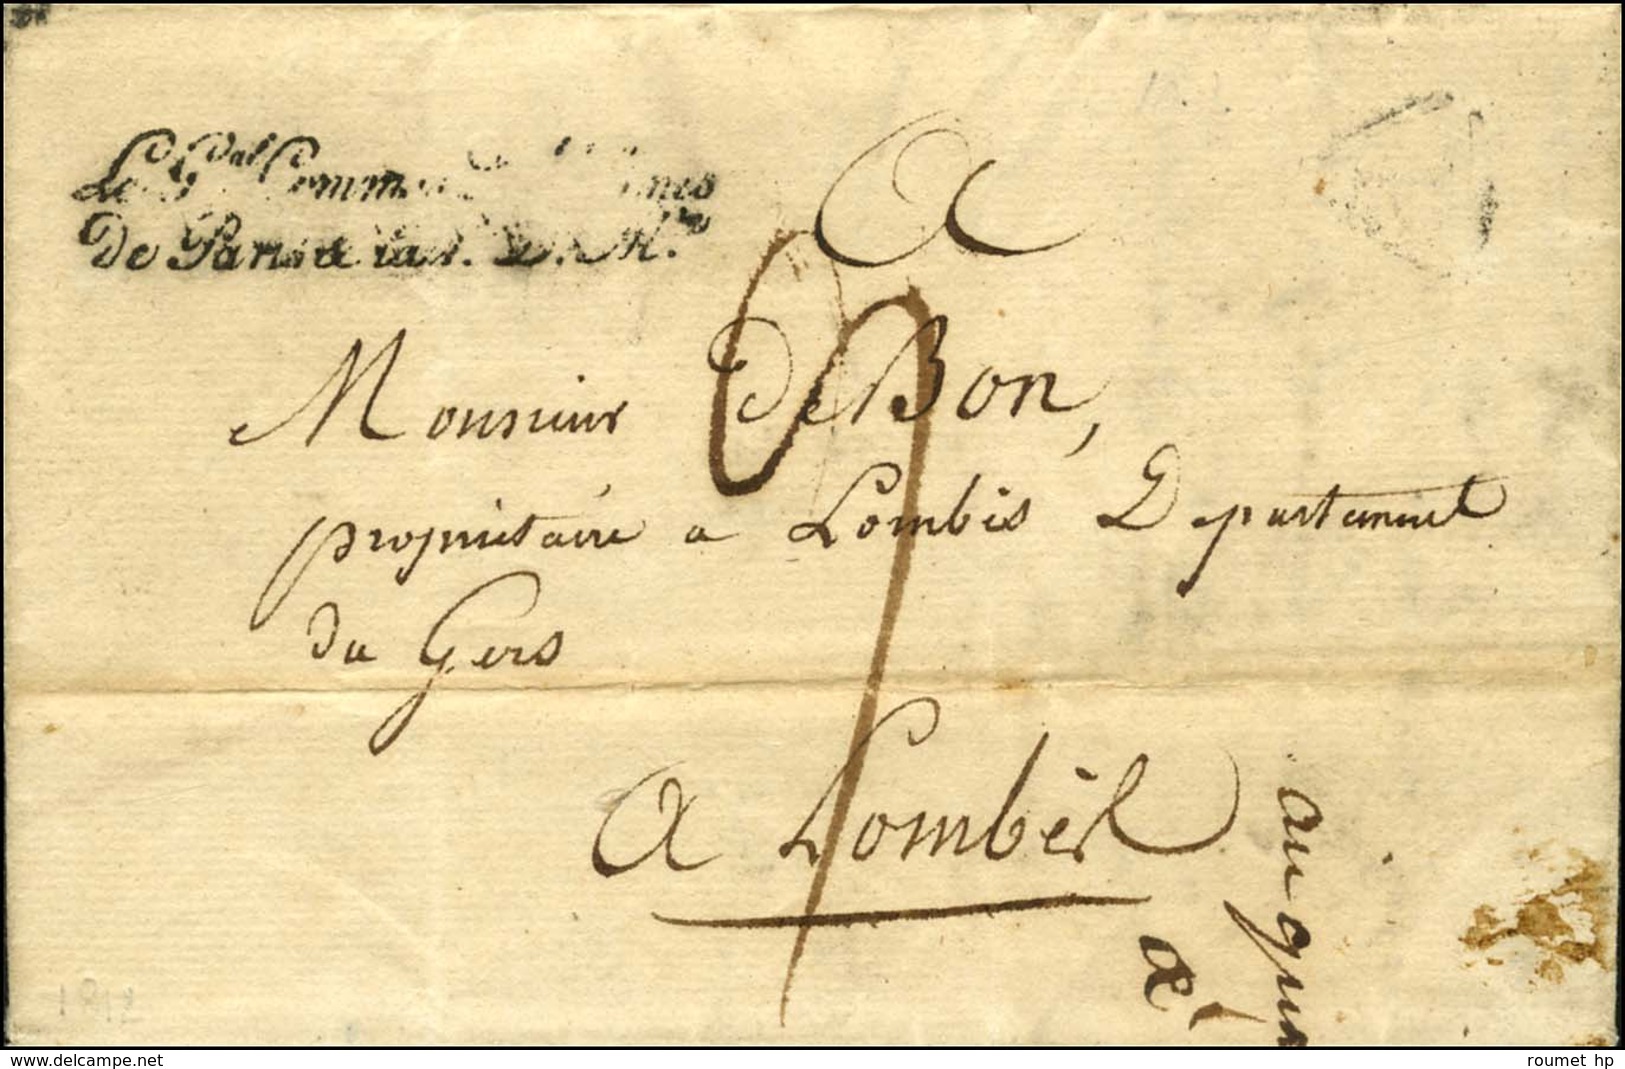 Le G^dal Comm
De Paris & la 1. D. M^re
A
Monsieur De Bon,
propriétaire a Lombés Departement
du Gers
A Lombés
www.delcampe.net
roumet hp